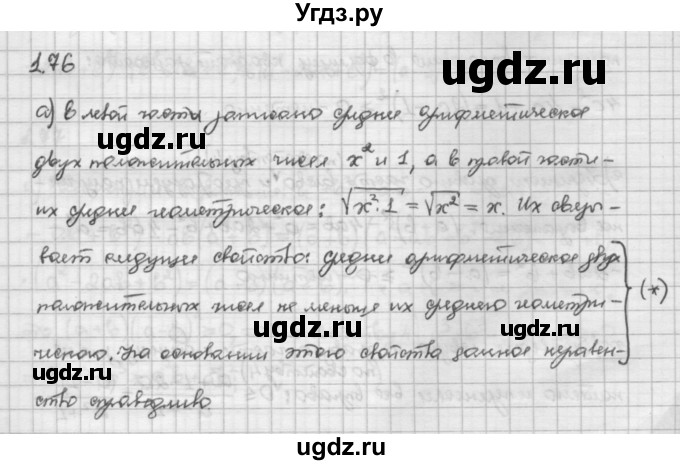 Угдз.ру
1.76
угдз.ru
а) в левой части записано среднее арифметическое
угдз.ru
двух положительных чисел x² и 1, а в правой части –
их среднее геометрическое: √(x²·1) = √x² = x. Их связы-
угдз.ru
вает следующее свойство: среднее арифметическое двух
положительных чисел не меньше их среднего геометри- (*)
угдз.ru
ческого. На основании этого свойства данное неравен-
угдз.ru
ство справедливо.
угдз.ru